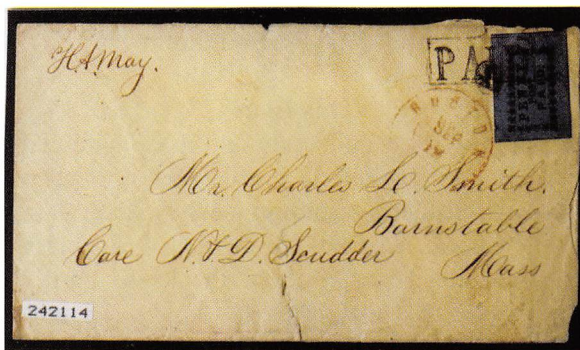 H. A. May.
PAID
BOSTON
SEP
Mr. Charles L. Smith.
Barnstable
Care N. & D. Scudder
Mass
242114